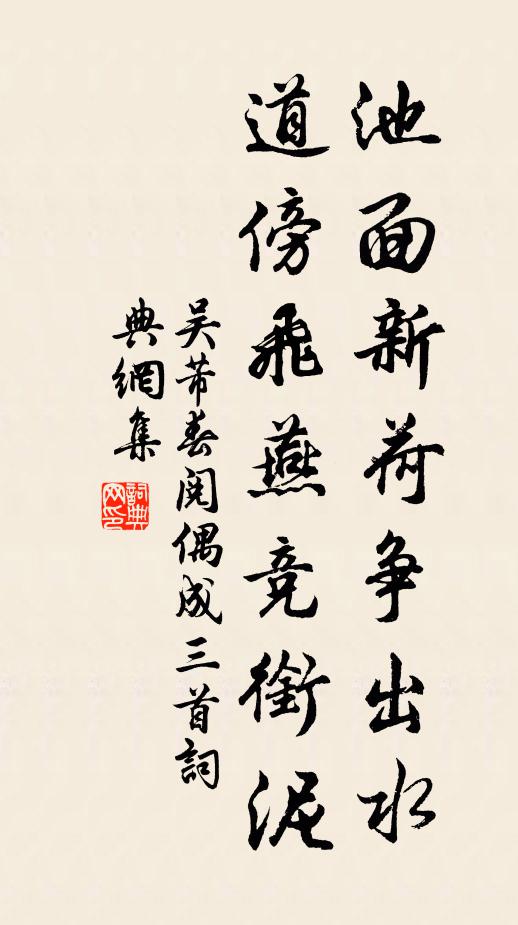 池面新荷争出水
道傍飛燕竞銜泥
吴芾春偶成三首詞
典網集
詞典
网印